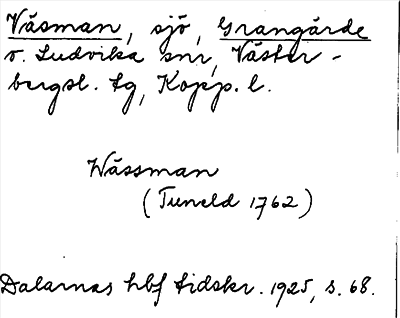 Väsman, sjö, Grangärde
o. Ludvika snr, Väster-
bergsl. tg, Kopp. l.
Wässman
(Tuneld 1762)
Dalarnas hbf tidskr. 1925, s. 68.